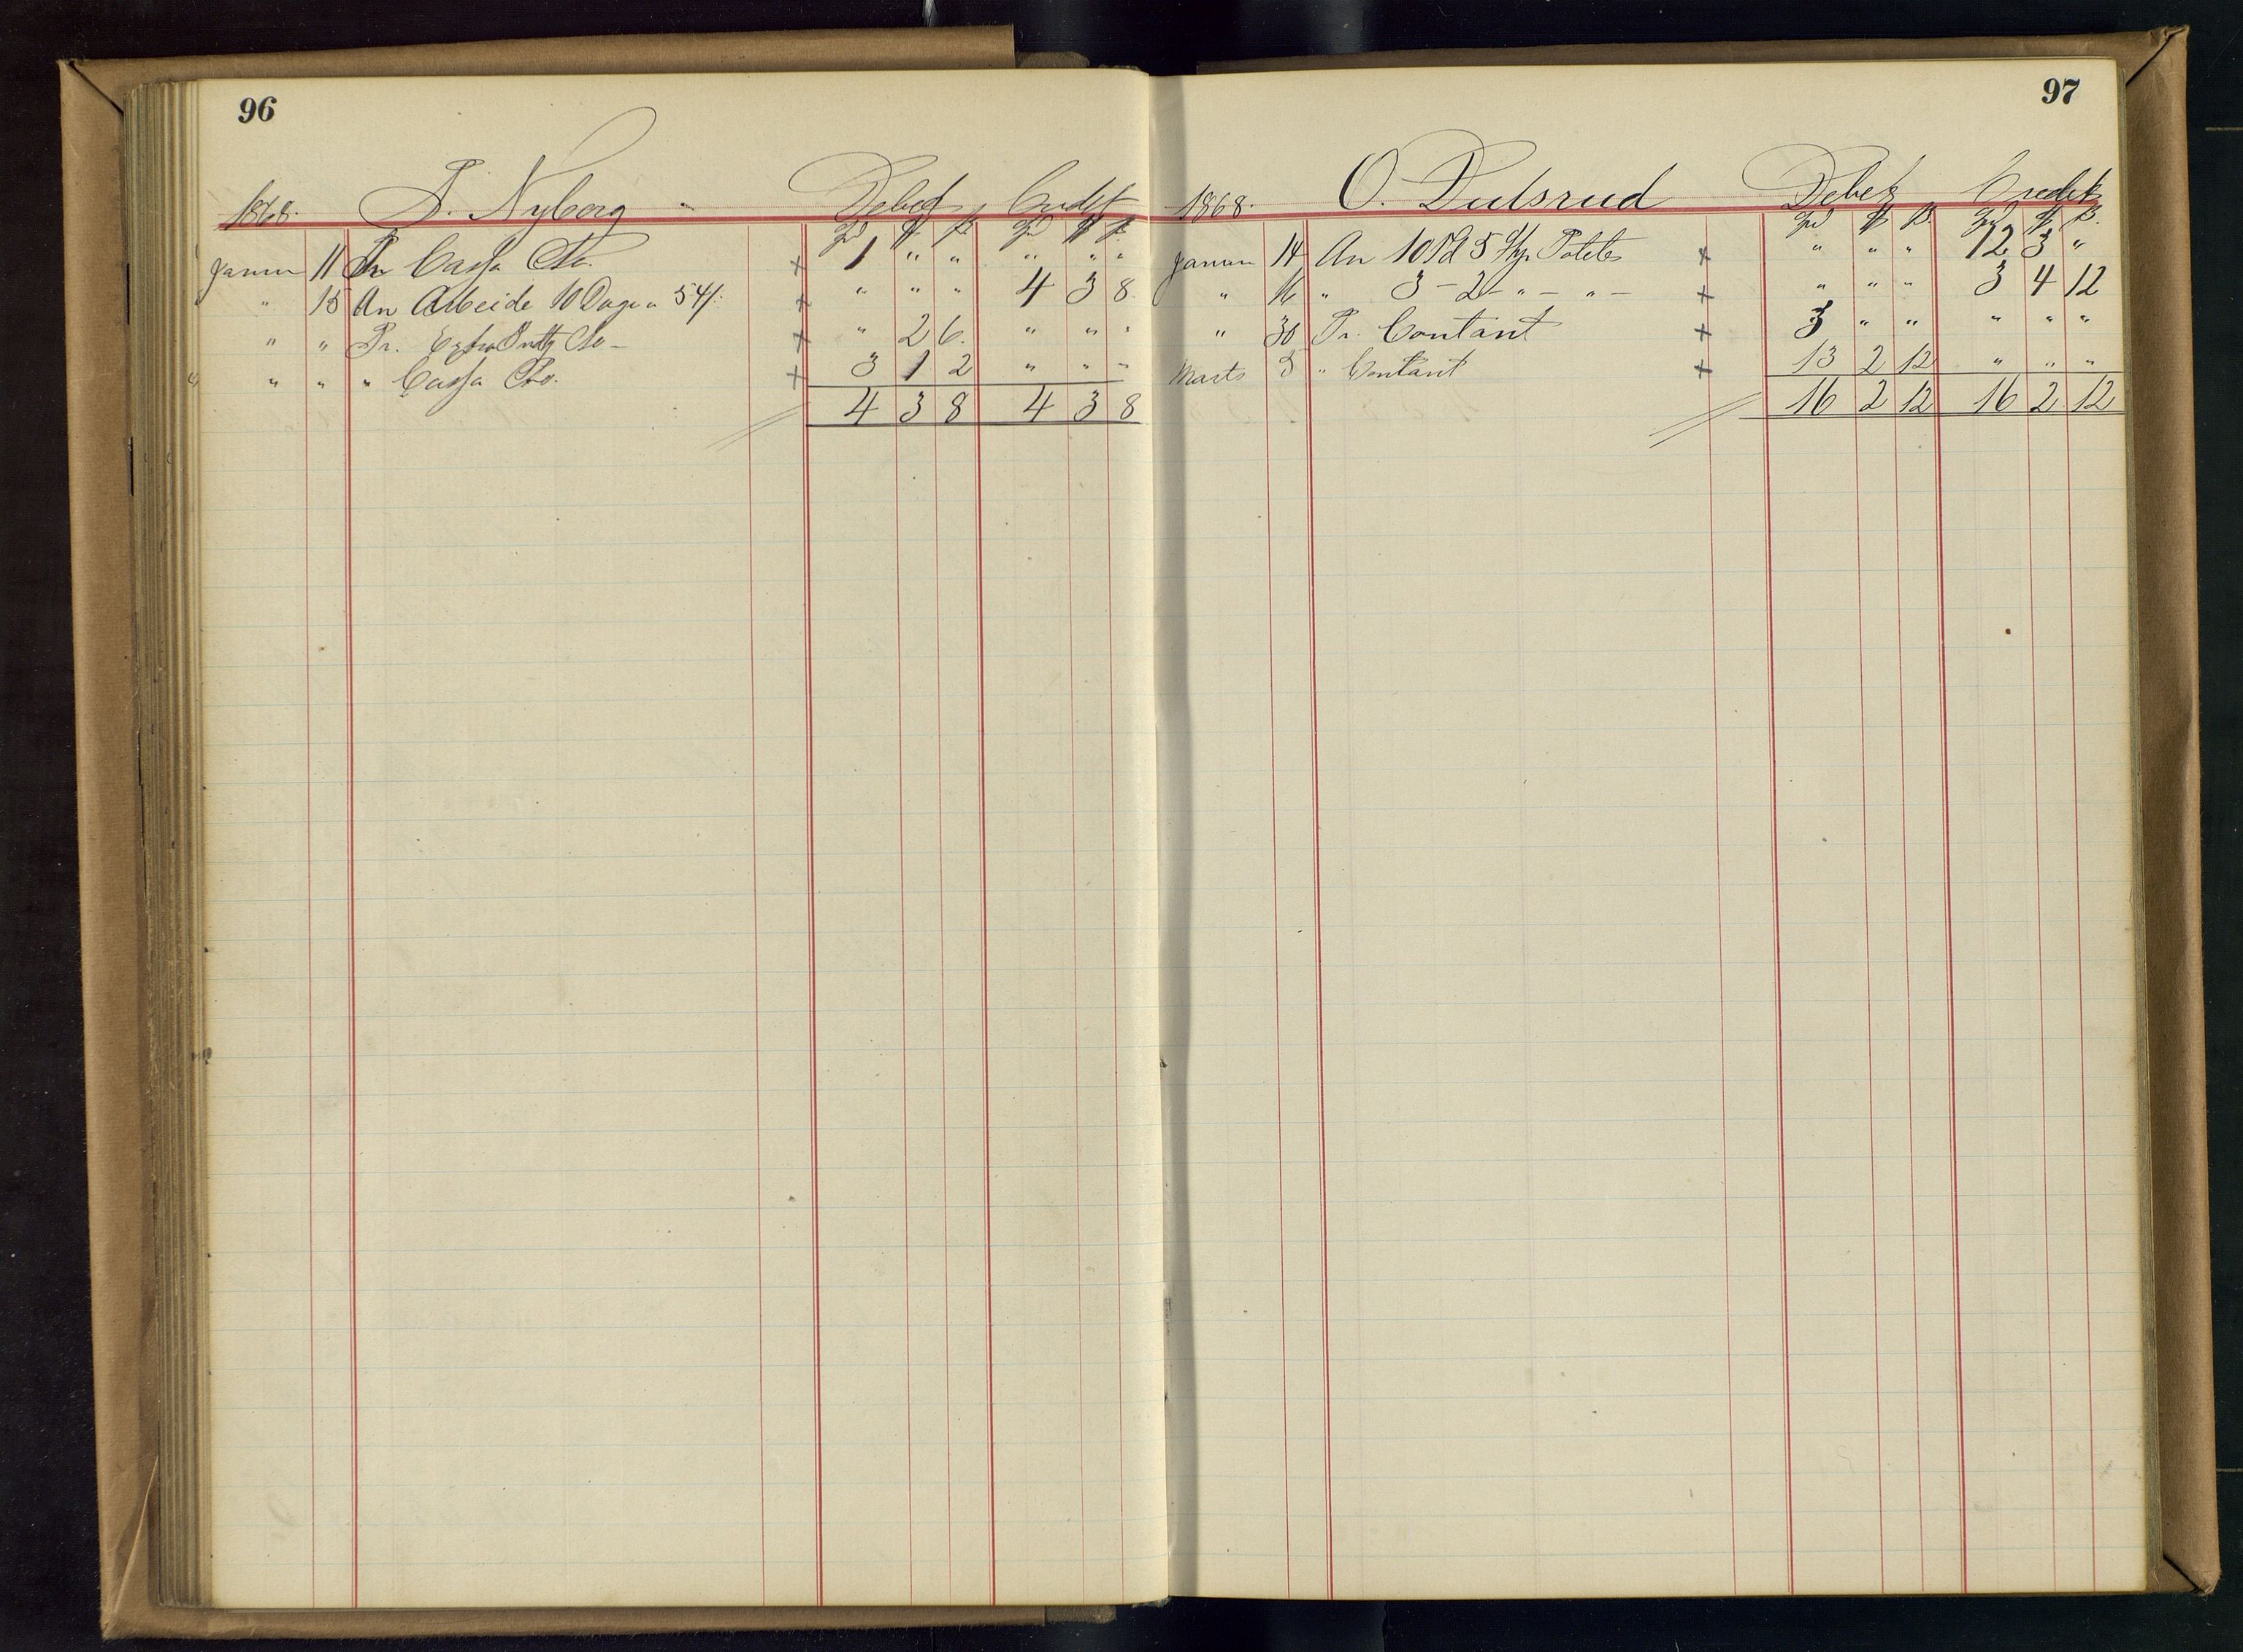 96
1868. P. Nyborg " Debet Credit
Spd ₰ β. Spd ₰ β.
Januar 11 Pr Cassa Cto. + 1 " " " " "
" 15 An Arbeide 10 Dage a 54β. + " " " 4 3 8
" " Pr. Cto + " 2 6. " " "
" " " Cassa Cto. + 3 1 2 " " "
4 3 8 4 3 8
97
1868. O. Dulsrud Debet Credit
Spd ₰ β. Spd ₰ β.
Januar 14 An 10 Td 5 Skp. Poteter + " " " 12 3 "
" 16 " 3 - 2 - " - " - + " " " 3 4 12
" 30 Pr. Contant + 3 " " " " "
Marts 5 " Contant + 13 2 12 " " "
16 2 12 16 2 12